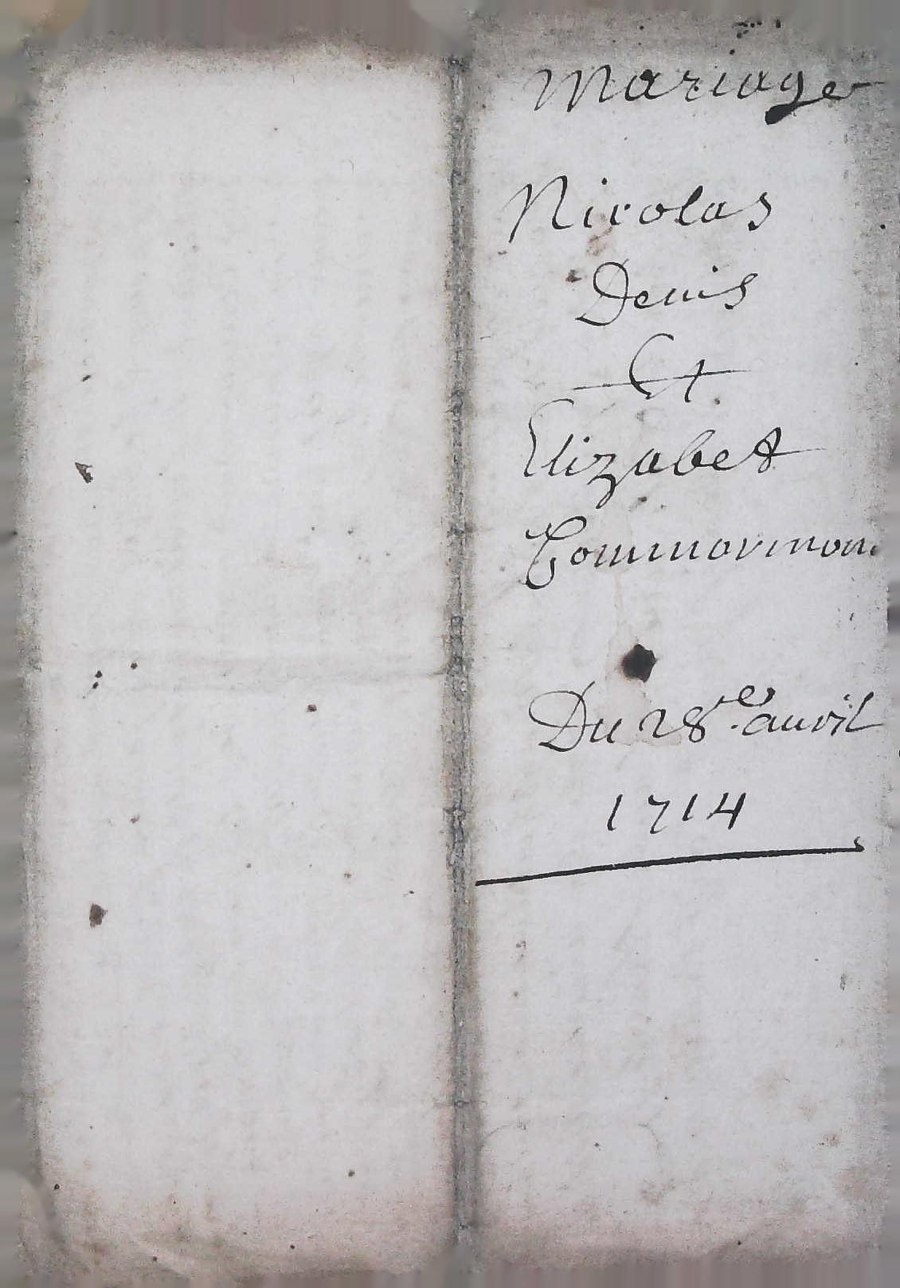 Mariage
Nicolas
Denis
Et
Elizabet
Du 28e. auvril
1714